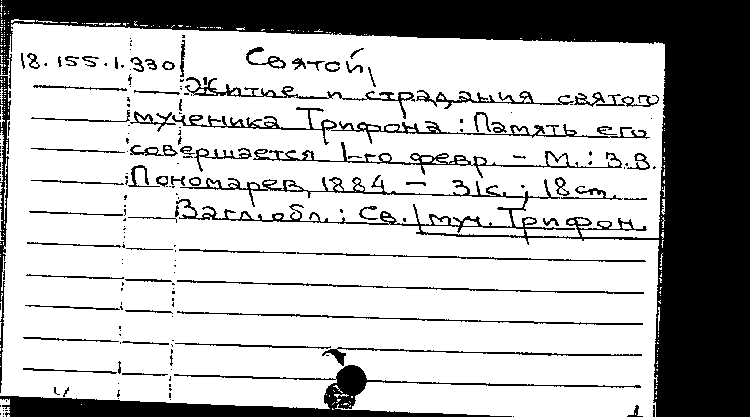 18.155.1.930
Святой,
Житие и страдания святого
мученика Трифона : Память его
совершается 1-го февр. - М. : З.В.
Пономарев, 1884. - 31с. ; 18 cm.
Загл. обл. : Св. муч. Трифон.